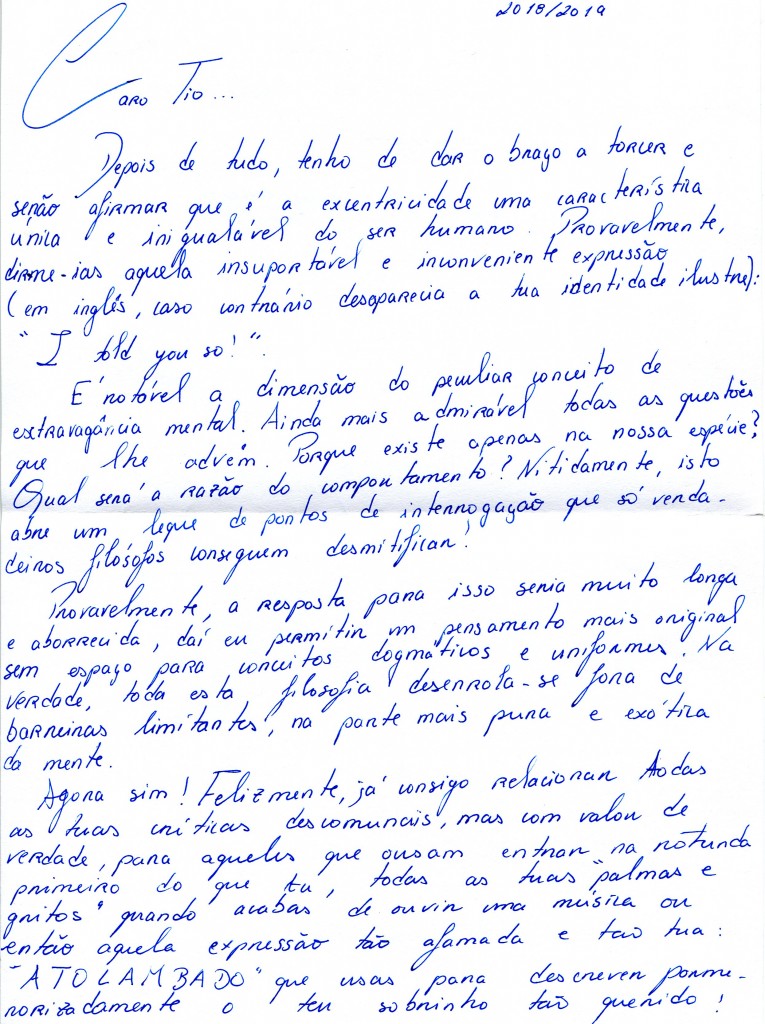 2018/2019
Caro Tio...
Depois de tudo, tenho de dar o braço a torcer e
senão afirmar que é a excentricidade uma característica
única e inigualável do ser humano. Provavelmente,
dirme-ias aquela insuportável e inconveniente expressão
(em inglês, caso contrário desaparecia a tua identidade ilustre):
"I told you so!".
É notável a dimensão do peculiar conceito de
extravagância mental. Ainda mais admirável todas as questões
que lhe advém. Porque existe apenas na nossa espécie?
Qual será a razão do comportamento? Nitidamente, isto
abre um leque de pontos de interrogação que só verda-
deiros filósofos conseguem desmitificar!
Provavelmente, a resposta para isso seria muito longa
e aborrecida, daí eu permitir um pensamento mais original
sem espaço para conceitos dogmáticos e uniformes. Na
verdade, toda esta filosofia desenrola-se fora de
barreiras limitantes, na parte mais pura e exótica
da mente.
Agora sim! Felizmente, já consigo relacionar todas
as tuas críticas descomunais, mas com valor de
verdade, para aqueles que ousam entrar na rotunda
primeiro do que tu, todas as tuas "palmas e
gritos" quando acabas de ouvir uma música ou
então aquela expressão tão afamada e tão tua:
"ATOLAMBADO" que usas para descrever porme-
norizadamente o teu sobrinho tão querido!